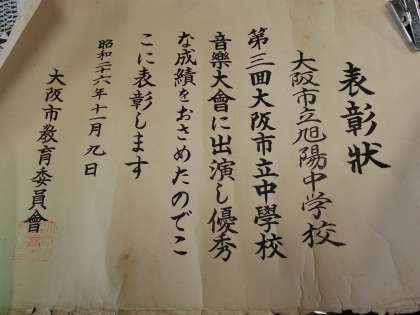 表彰状
大阪市立旭陽中学校
第三回大阪市立中學校
音樂大會に出演し優秀
な成績をおさめたのでこ
こに表彰します
昭和二十六年十一月九日
大阪市敎育委員會